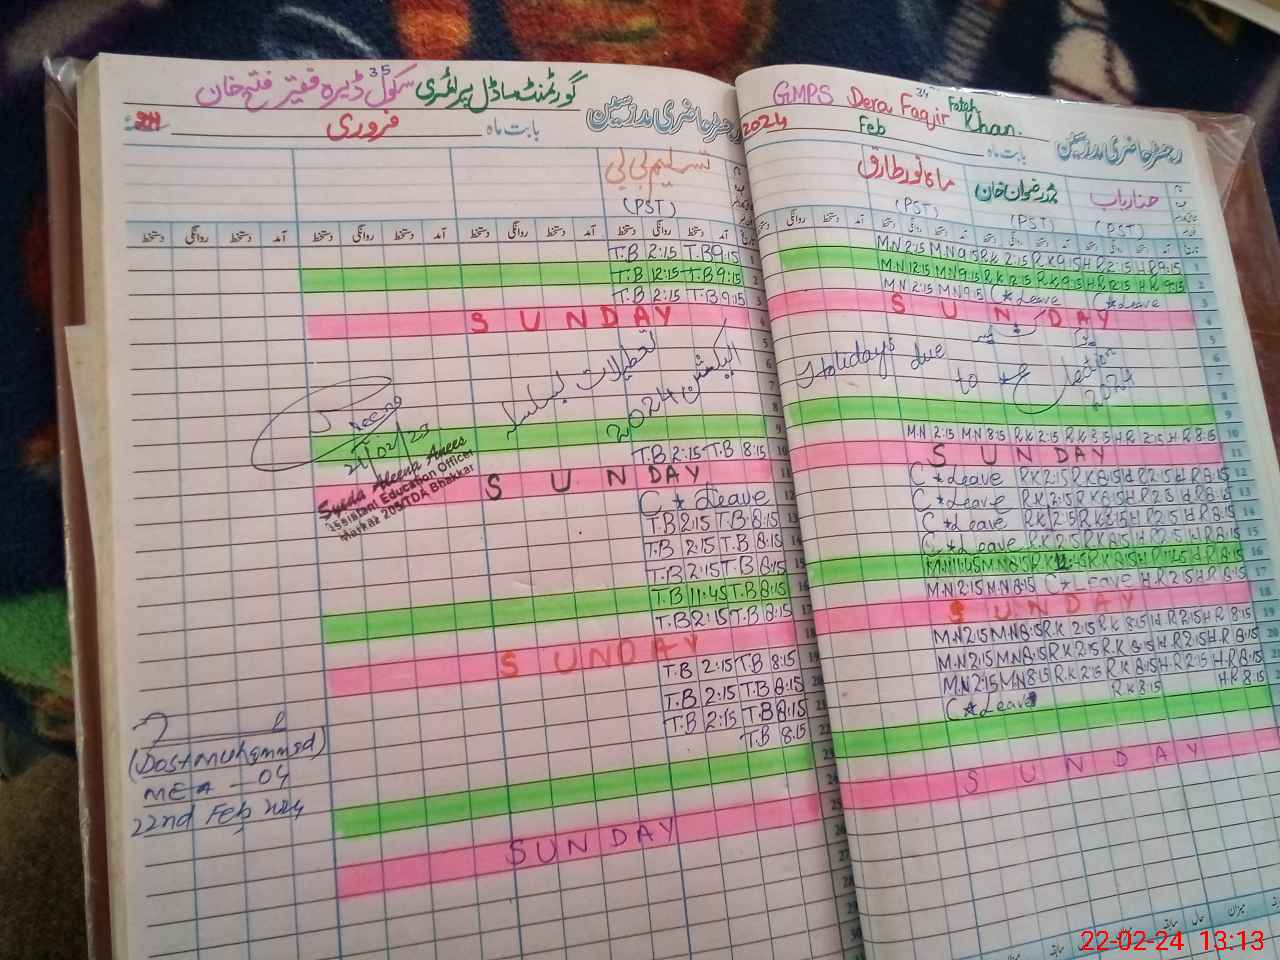 گورنمنٹ ماڈل پرائمری سکول ڈیرہ فقیر فتح خان
35
رجسٹر حاضری مدرسین
بابت ماہ فروری
تسلیم بی بی
(PST)
آمد دستخط روانگی دستخط
T.B 2:15 T.B 9:15
T.B 12:15 T.B 9:15
T.B 2:15 T.B 9:15
SUNDAY
تعطیلات بسلسلہ
الیکشن 2024
T.B 2:15 T.B 8:15
SUNDAY
C * Leave
T.B 2:15 T.B 8:15
T.B 2:15 T.B 8:15
T.B 2:15 T.B 8:15
T.B 11:45 T.B 8:15
T.B 2:15 T.B 8:15
SUNDAY
T.B 2:15 T.B 8:15
T.B 2:15 T.B 8:15
T.B 2:15 T.B 8:15
T.B 8:15
SUNDAY
Syeda Aleena Anees
Assistant Education Officer
Markaz 205/TDA Bhakkar
(Dost Muhammad)
MEA - 04
22nd Feb 2024
GMPS Dera Faqir Fateh Khan.
2024 Feb
بابت ماہ
رجسٹر حاضری مدرسین
ماہ نور طارق
(PST)
رضوان خان
(PST)
حنا رباب
(PST)
M.N 2:15 M.N 9:15 R.K 2:15 R.K 9:15 H.R 2:15 H.R 9:15
M.N 12:15 M.N 9:15 R.K 12:15 R.K 9:15 H.R 12:15 H.R 9:15
M.N 2:15 M.N 9:15 C * Leave C * Leave
SUNDAY
Holidays due
to Election
2024
M.N 2:15 M.N 8:15 R.K 2:15 R.K 8:15 H.R 2:15 H.R 8:15
SUNDAY
C * Leave R.K 2:15 R.K 8:15 H.R 2:15 H.R 8:15
C * Leave R.K 2:15 R.K 8:15 H.R 2:15 H.R 8:15
C * Leave R.K 2:15 R.K 8:15 H.R 2:15 H.R 8:15
C * Leave R.K 2:15 R.K 8:15 H.R 2:15 H.R 8:15
M.N 11:45 M.N 8:15 R.K 11:45 R.K 8:15 H.R 11:45 H.R 8:15
M.N 2:15 M.N 8:15 C * Leave H.R 2:15 H.R 8:15
SUNDAY
M.N 2:15 M.N 8:15 R.K 2:15 R.K 8:15 H.R 2:15 H.R 8:15
M.N 2:15 M.N 8:15 R.K 2:15 R.K 8:15 H.R 2:15 H.R 8:15
M.N 2:15 M.N 8:15 R.K 2:15 R.K 8:15 H.R 2:15 H.R 8:15
C * Leave R.K 8:15 H.R 8:15
SUNDAY
22-02-24 13:13